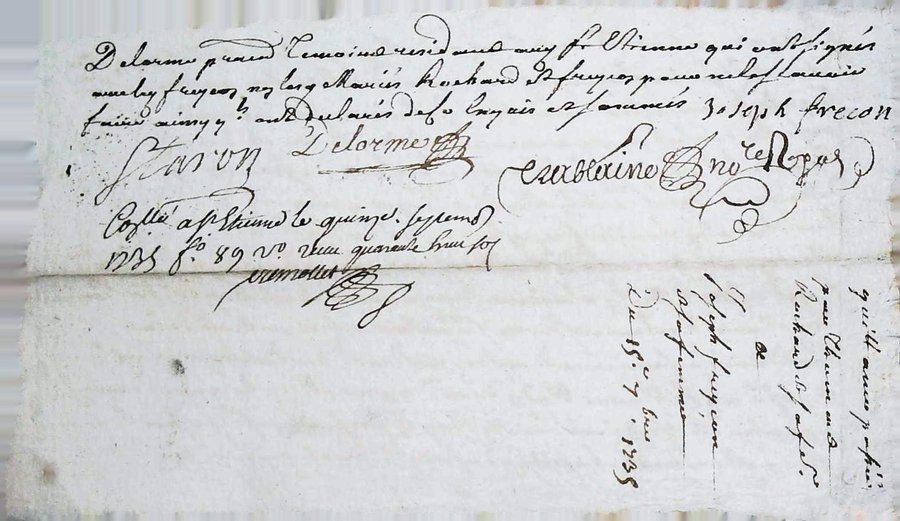 Delorme praud temoins residans aud St Etienne qui ont signés
avec led freycon non lesd Mariés Rochard et freycon pour ne le scavoir
faire ainsy qls ont declarés de ce enquis et sommés Joseph frecon
Staron Delorme nore Royal
Collé a St Etienne le quinze septemb
1735 fo 89 vo receu quarante huit sol
quittance passée
par
Rochard et sa fe
a
Joseph freycon
et sa femme
Du 15e 7bre 1735